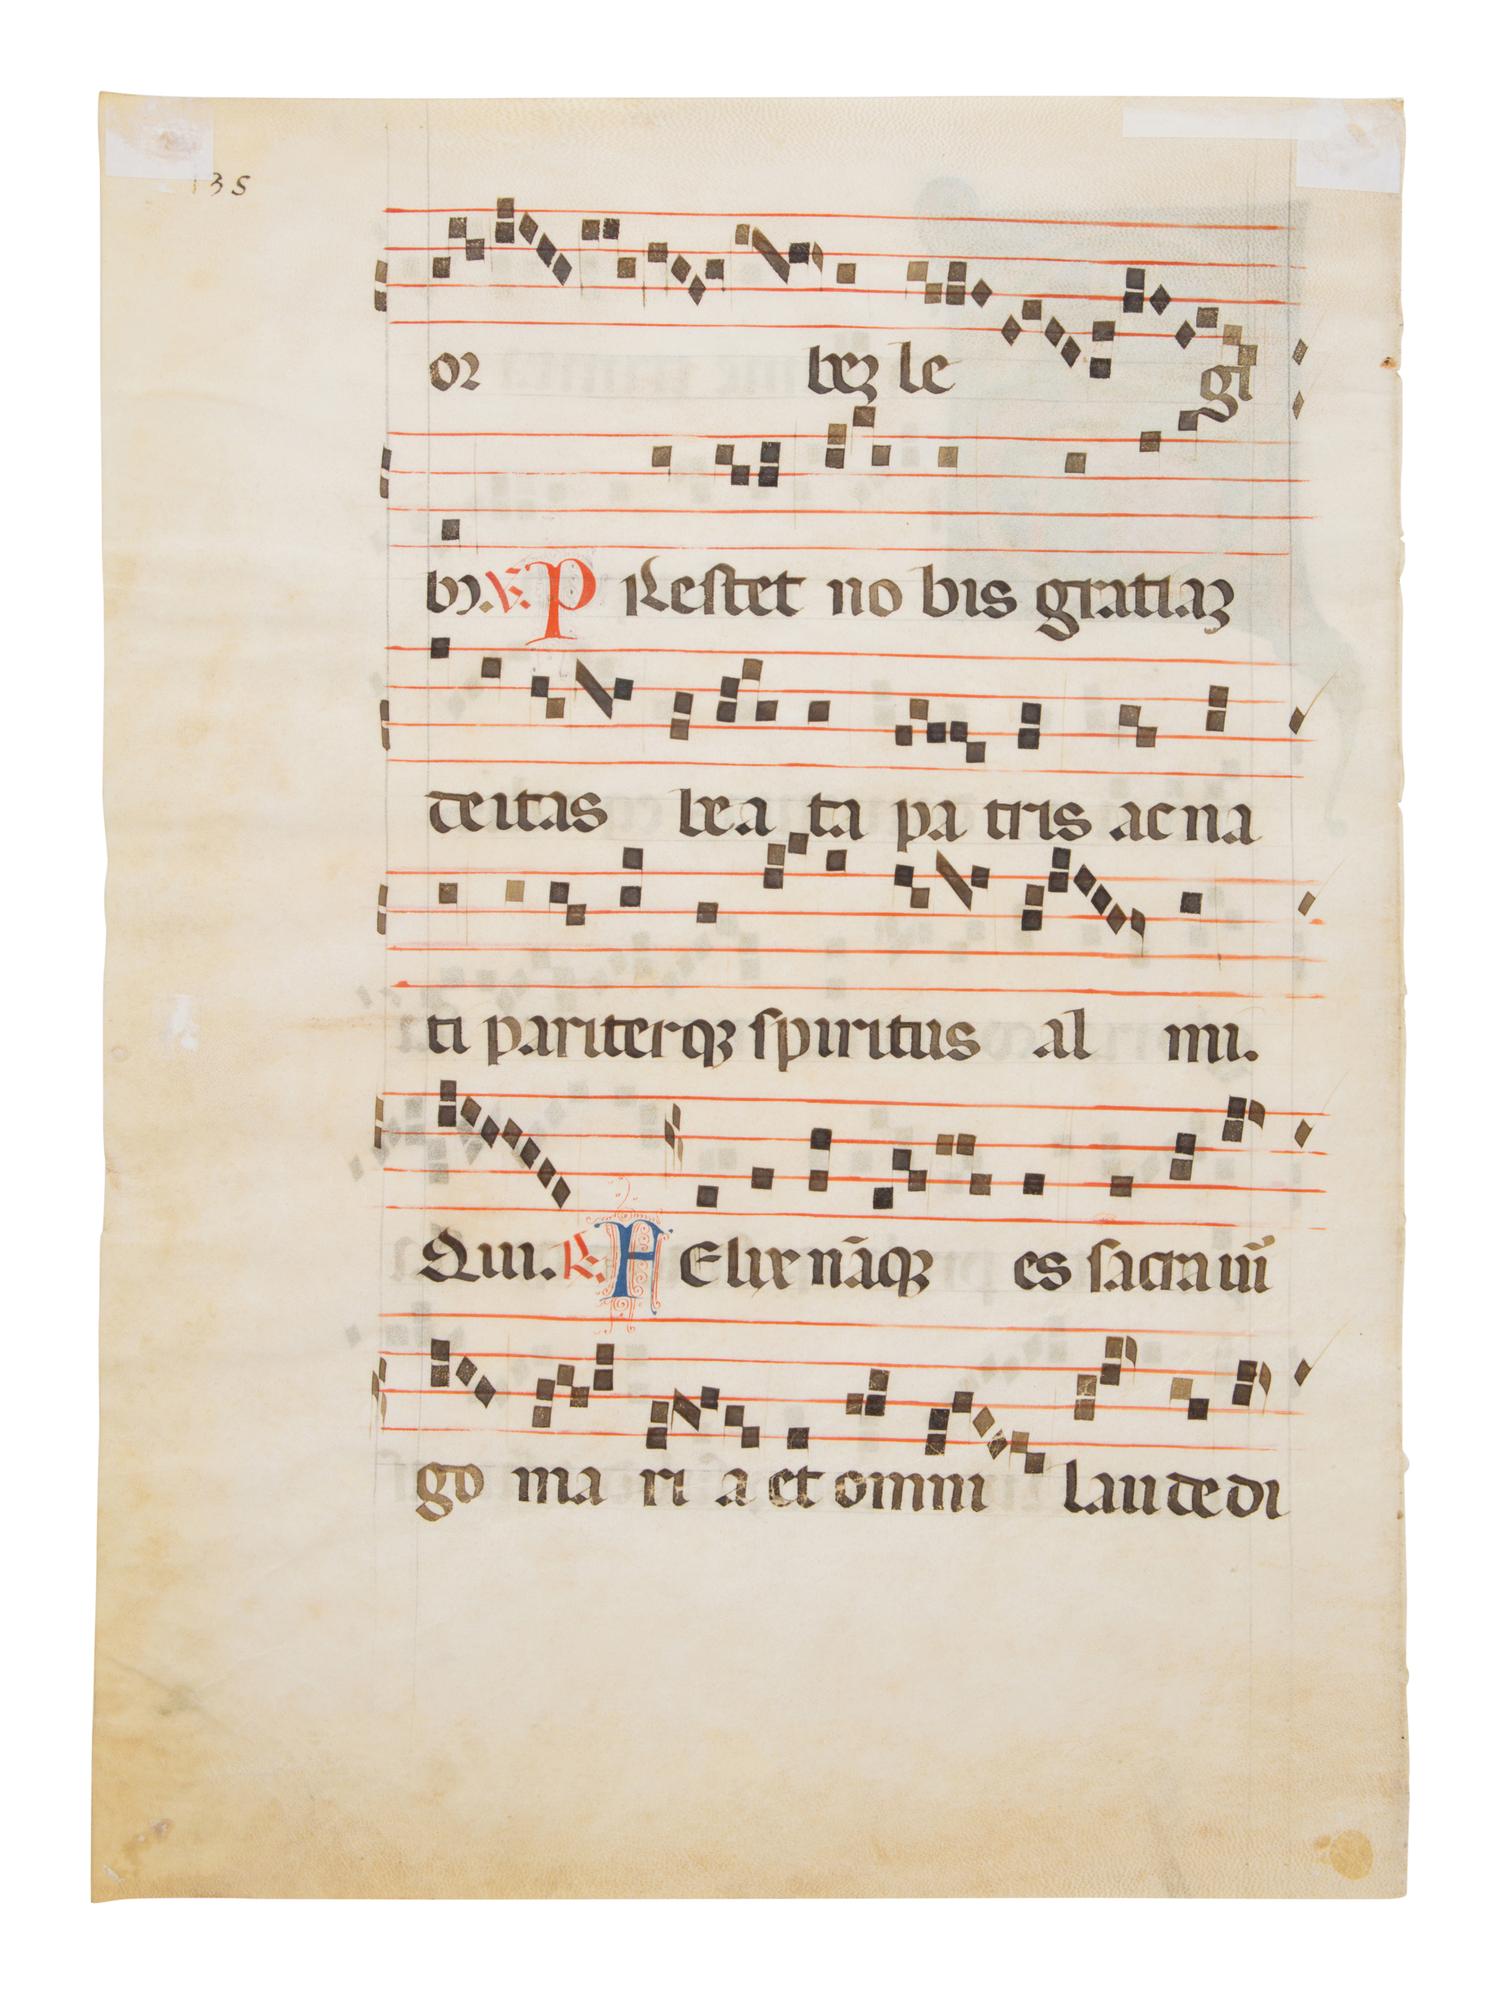 135
or beꝫ le gi
bꝰ. ℣. PRestet no bis gratiaꝫ
deitas bea ta pa tris ac na
ti pariterqꝫ spiritus al mi.
Qui. ℟. FElix nāqꝫ es sacra uı̄
go ma ri a et omni laude di